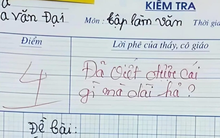 KIỂM TRA
a Văn Đại
Môn: tập làm văn Thời gi
Điểm
Lời phê của thầy, cô giáo
4
Đã viết được cái
gì mà dài hả?
Đề bài: